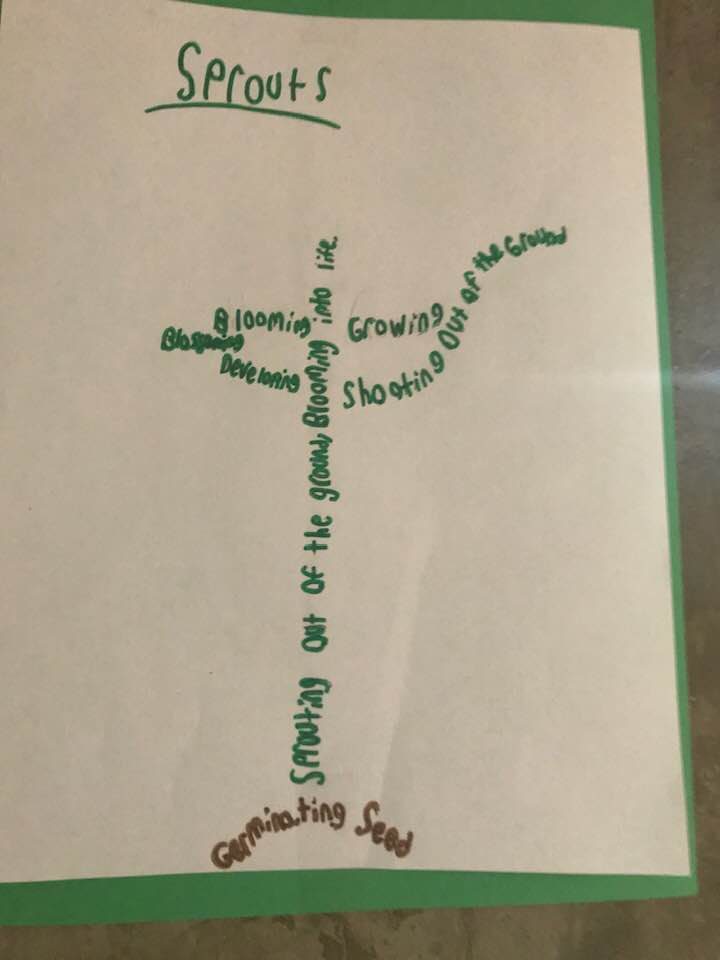 Sprouts
Blooming
Blossoming
Developing
Growing
Shooting Out of the Ground
Sprouting out of the ground, Blooming into life.
Germinating Seed